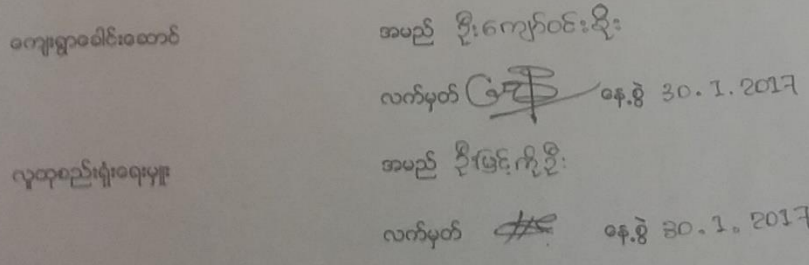 ကျေးရွာခေါင်းဆောင် အမည် ဦးကျော်ဝင်းစိုး
လက်မှတ် နေ့စွဲ 30.1.2017
လူထုစည်းရုံးရေးမှူး အမည် ဦးမြင့်ကိုဦး
လက်မှတ် နေ့စွဲ 30.1.2017